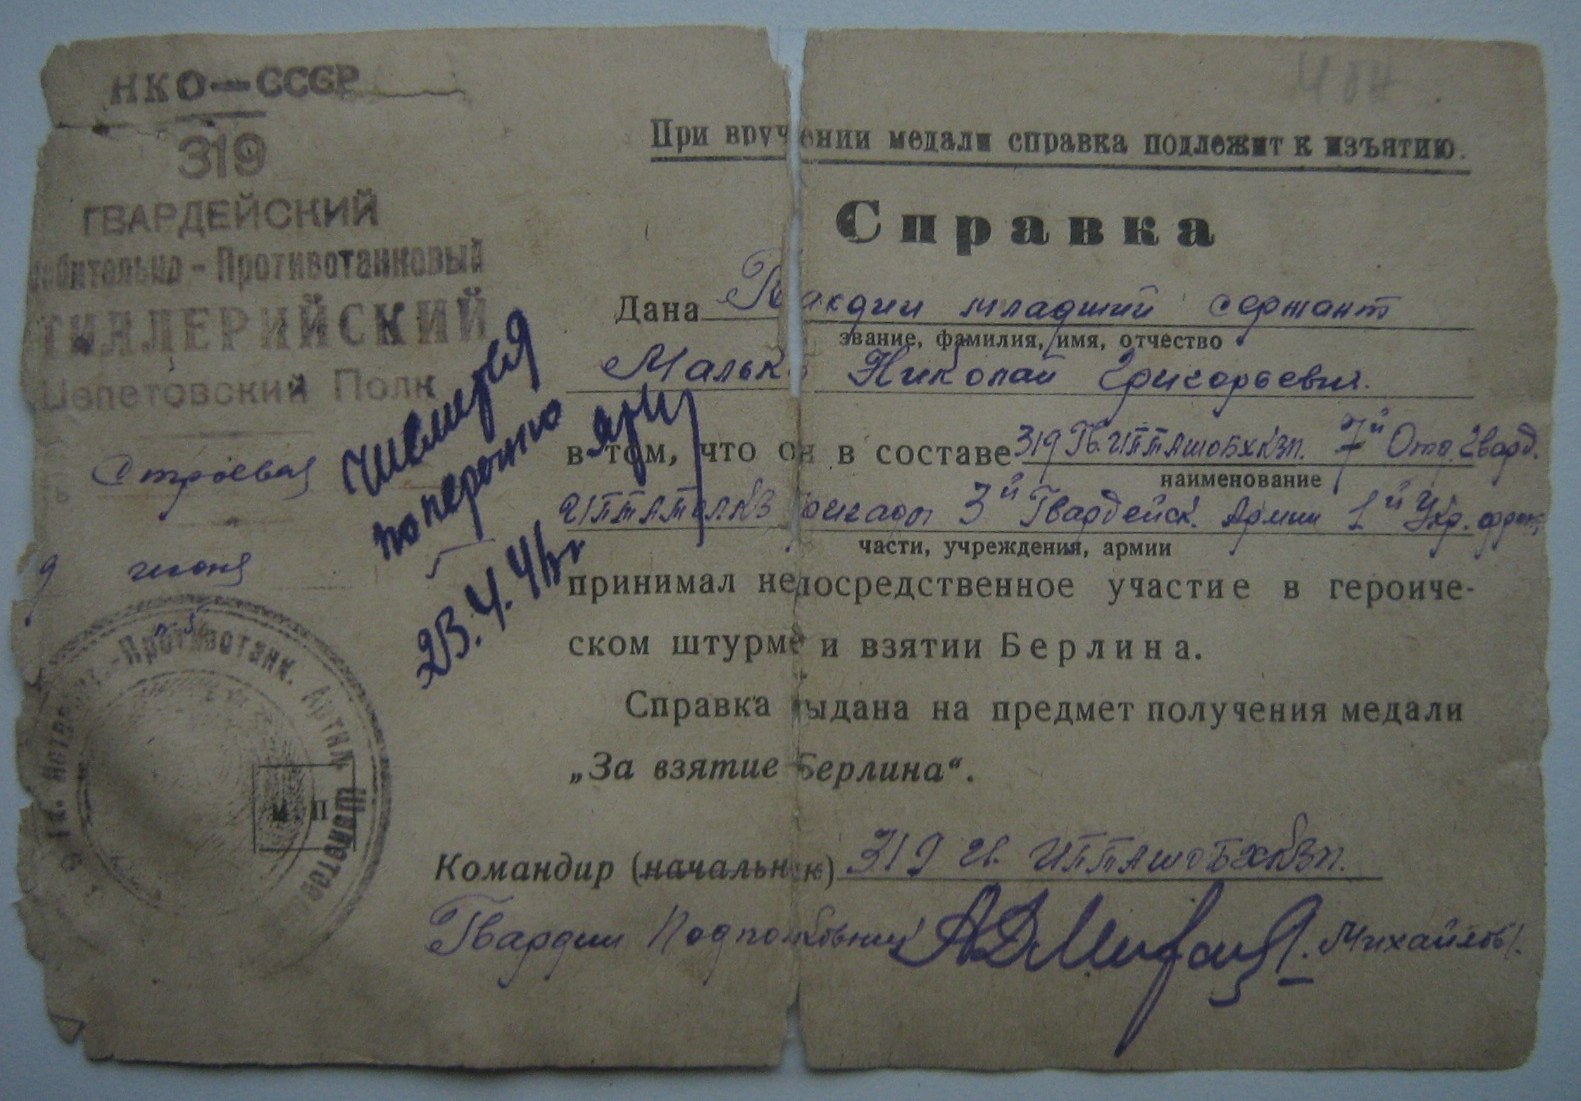 НКО—СССР
319
ГВАРДЕЙСКИЙ
бительно-Противотанковый
ТИЛЛЕРИЙСКИЙ
Шепетовский Полк
Строевая
9 июня
При вручении медали справка подлежит к изъятию.
Справка
Дана Гвардии младший сержант
звание, фамилия, имя, отчество
Мальк Николай Григорьевич.
в том, что он в составе 319 Гв. ИПТАШОБХКВп. 7й Отд. Гвард.
наименование
ИПТА бригады 3й Гвардейск. Армии 1й Укр. фронт
части, учреждения, армии
принимал непосредственное участие в героиче-
ском штурме и взятии Берлина.
Справка выдана на предмет получения медали
„За взятие Берлина“.
Командир (начальник) 319 Гв. ИПТАШОБХКВп.
Гвардии Подполковник Михайлов
числится
23.4.46г
-Противотанк. Артил. Шепетов
М П